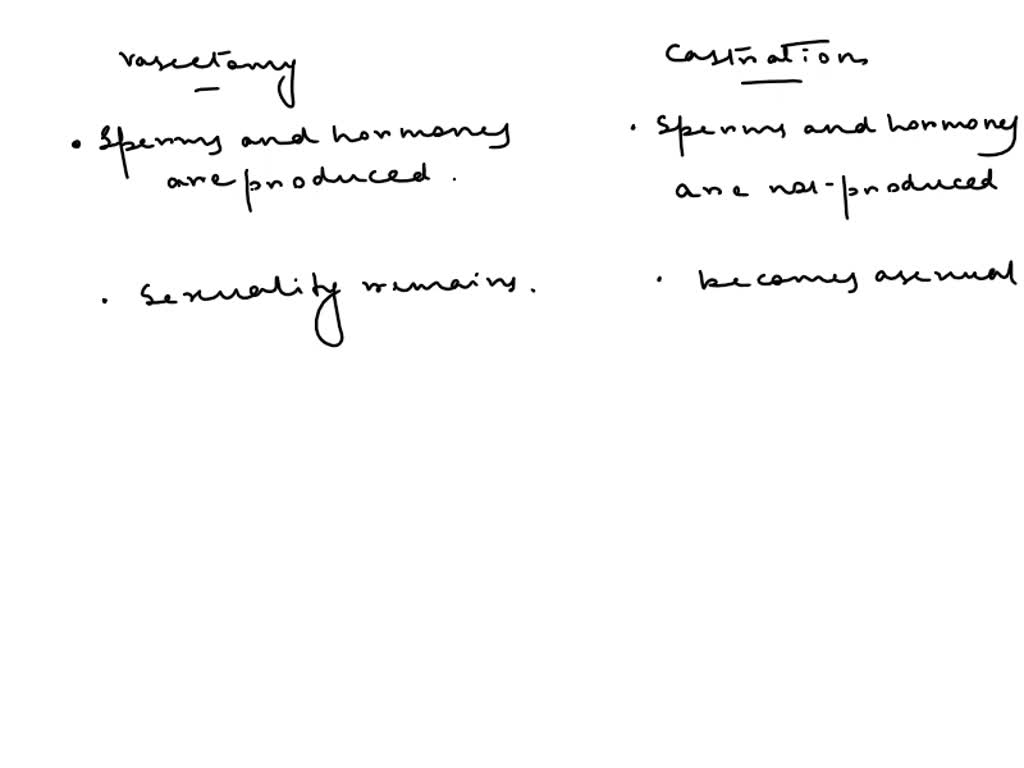 vasectomy
• Sperms and hormones
are produced.
• Sexuality remains.
Castration
• Sperms and hormones
are not produced
• becomes asexual